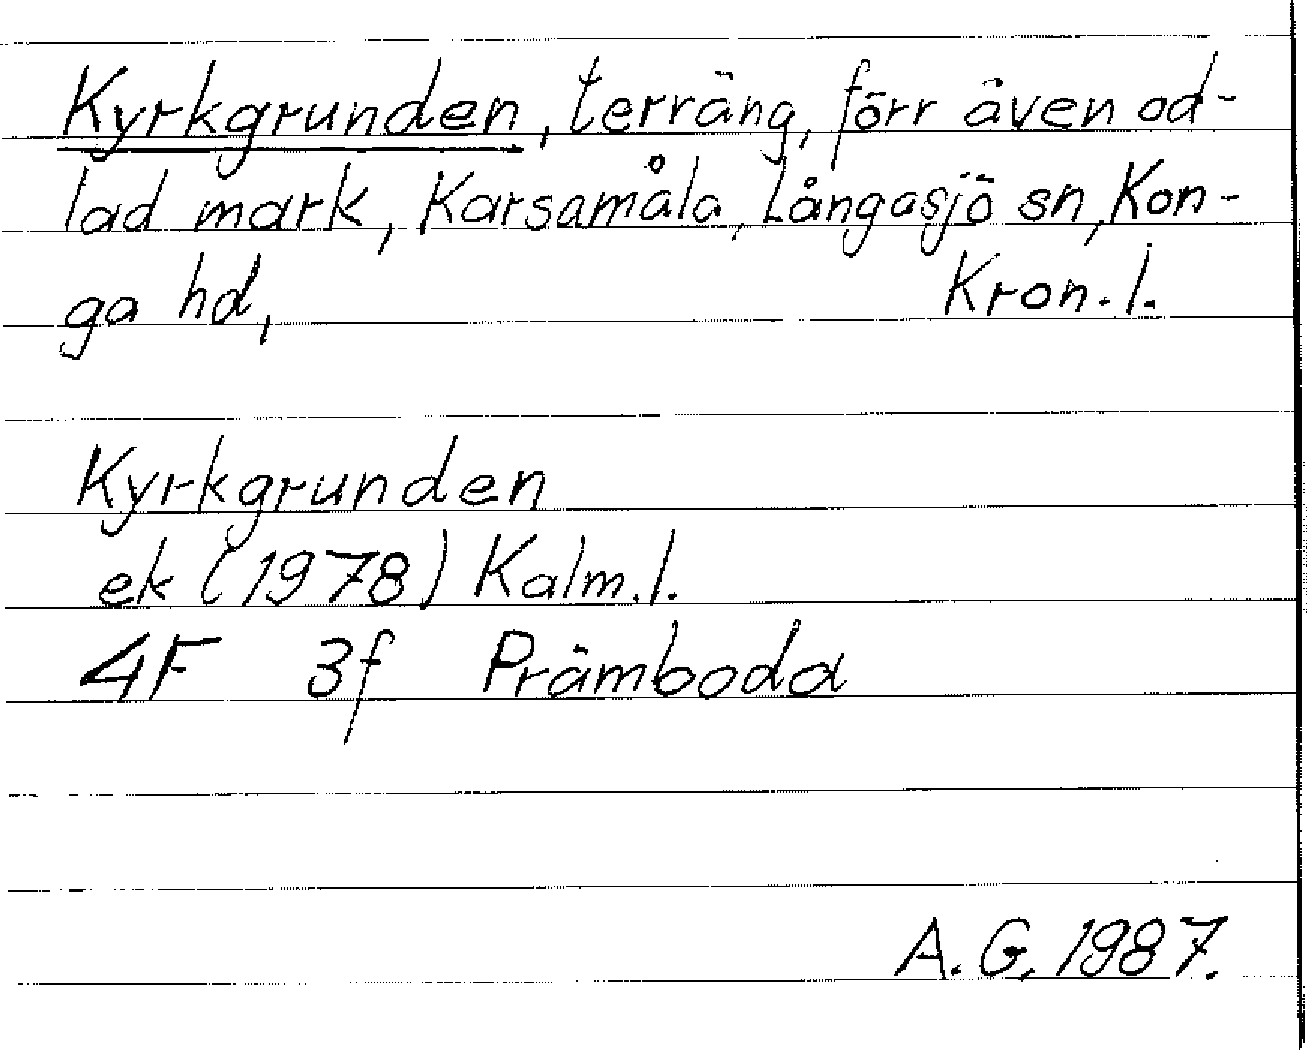 Kyrkgrunden, terräng, förr även od-
lad mark, Karsamåla, Långasjö sn, Kon-
ga hd, Kron. l.
Kyrkgrunden
ek (1978) Kalm. l.
4F 3f Främboda
A. G. 1987.